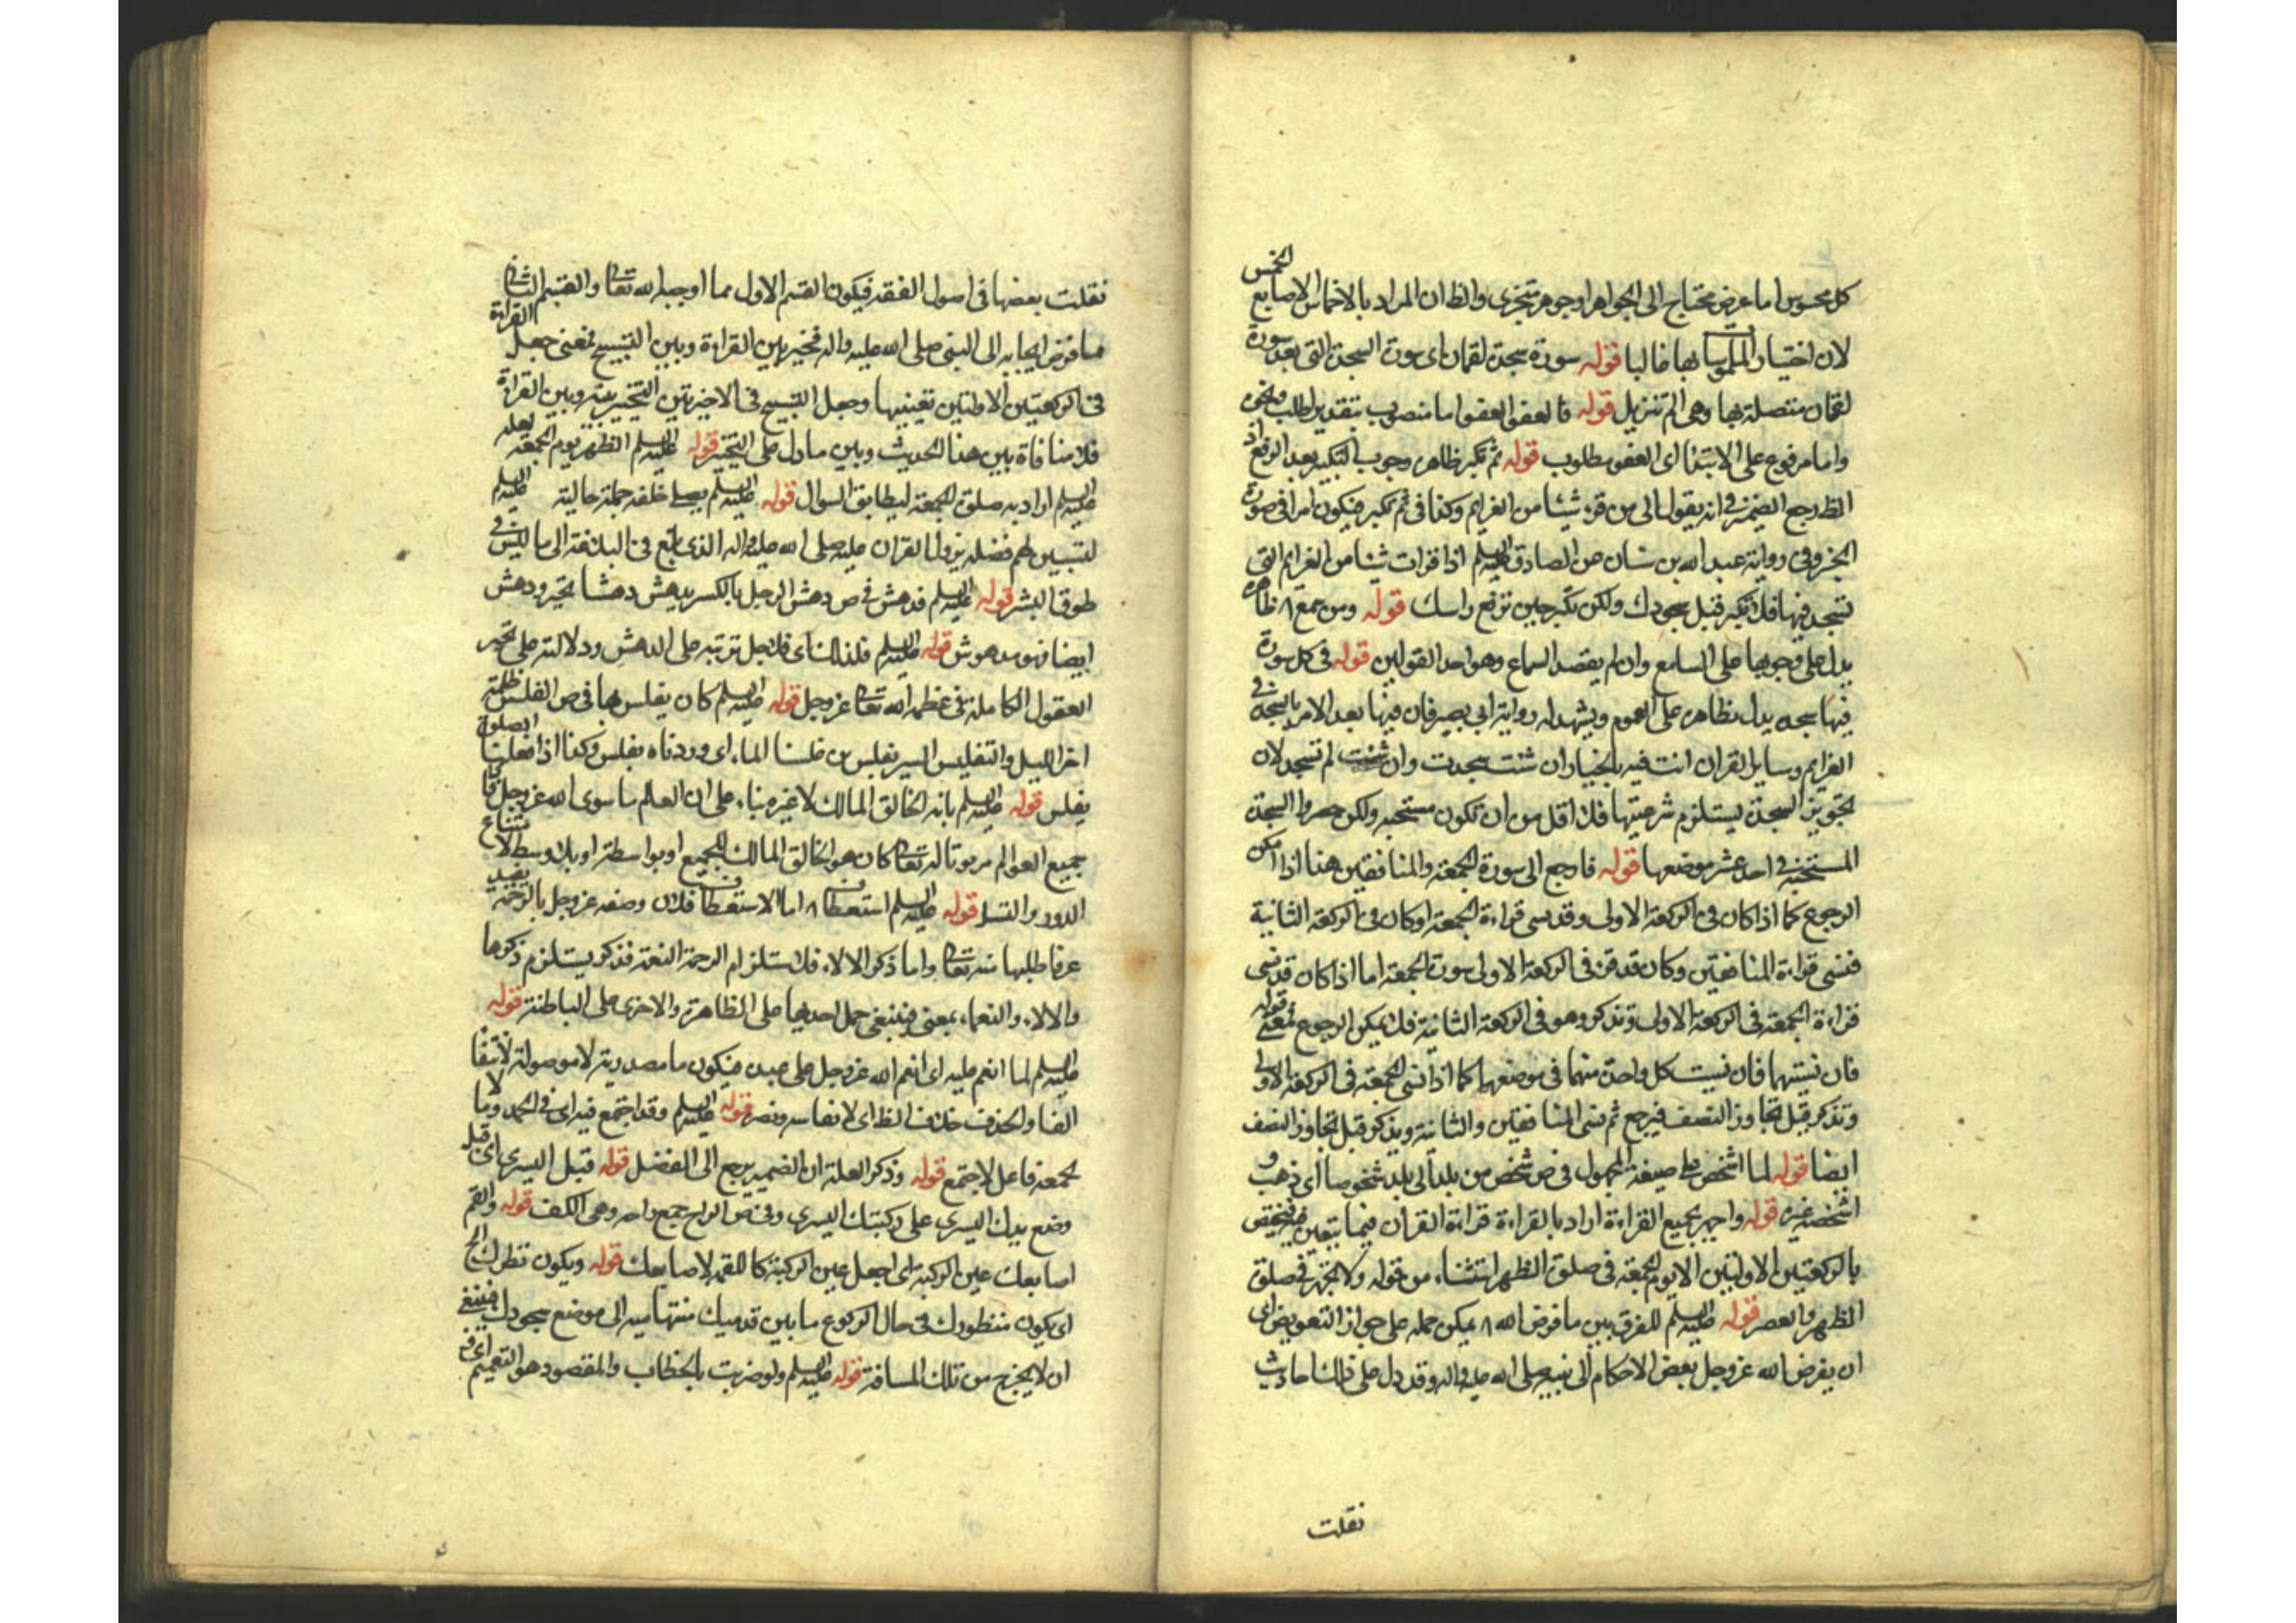 كل محسوس اما عرض محتاج الى الجواهر او جوهر متجزى والظ ان المراد بالاخماس الاصابع الخمس
لان اختيار الملموسا بها غالبا قوله سورة سجدة لقمان اى سورة السجدة التى بعد سورة
لقمان متصلة بها وهى الم تنزيل قوله فالعفو العفو اما منصوب بتقدير اطلب ونحوه
واما مرفوع على الابتدا اى العفو مطلوب قوله ثم تكبر ظاهره وجوب التكبير بعد الرفع اذ
الظ رجع الضمير في انه يقول الى من قرء شيئا من العزايم وكذا فى ثم تكبر فيكون امرا فى صورة
الخبر وفى رواية عبد الله بن سنان عن الصادق عليه السلم اذا قرات شيئا من العزايم التى
تسجد فيها فلا تكبر قبل سجودك ولكن تكبر حين ترفع راسك قوله ومن سمع ٨ ظاهره
يدل على وجوبها على السامع وان لم يقصد السماع وهو احد القولين قوله فى كل سورة
فيها سجده يدل بظاهره على العموم ويشهد له رواية ابى بصير فان فيها بعد الامر بالسجدة في
العزايم وساير القران انت فيه بالخيار ان شئت سجدت وان شئت لم تسجد لان
تجويز السجدة يستلزم شرعيتها فلا اقل من ان تكون مستحبه ولكن حصروا السجدة
المستحبة في احد عشر موضعها قوله فارجع الى سورة الجمعة والمنافقين هذا اذا امكن
الرجوع كما اذا كان فى الركعة الاولى وقد نسى قراءة الجمعة او كان فى الركعة الثانية
فنسى قراءة المنافقين وكان قد قرء فى الركعة الاولى سورة الجمعة اما اذا كان قد نسى
قراءة الجمعة فى الركعة الاولى وتذكر وهو فى الركعة الثانية فلا يمكن الرجوع فمعنى قوله
فان نسيتهما فان نسيت كل واحدة منهما فى موضعها كما اذا نسى الجمعة فى الركعة الاولى
وتذكر قبل تجاوز النصف فيرجع ثم نسى المنافقين والثانية ويذكر قبل تجاوز النصف
ايضا قوله لما اشخص على صيغة المجهول فى ص شخص من بلد الى بلد شخوصا اى ذهب و
اشخصه غيره قوله واجهر بجميع القراءة اراد بالقراءة قراءة القران فيما يتعين فيه فيختص
بالركعتين الاوليين الا يوم الجمعة فى صلوة الظهر استثناء من قوله ولا تجهر فى صلوة
الظهر والعصر قوله عليه السلم للفرق بين ما فرض الله ٨ يمكن حمله على جواز التعويض اى
ان يفرض الله عز وجل بعض الاحكام الى نبيه صلى الله عليه واله وقد دل على ذلك احاديث
نقلت
نقلت بعضها فى اصول الفقه فيكون القسم الاول مما اوجبه الله تعالى والقسم الثانى
مما فوض ايجابه الى النبى صلى الله عليه واله فخير بين القراءة وبين التسبيح فمعنى جعل القراءة
فى الركعتين الاولتين تعيينها وجعل التسبيح فى الاخيرتين التخيير بينه وبين القراءة
فلا منافاة بين هذا الحديث وبين ما دل على التخيير قوله عليه السلم الظهر يوم الجمعة لعله
عليه السلم اراد به صلوة الجمعة ليطابق السوال قوله عليه السلم يصلى خلفه جملة حالية عليه السلم
لتبيين لهم فضله نزول القران عليه صلى الله عليه واله الذى بلغ فى البلاغة الى ما ليس في
طوق البشر قوله عليه السلم فدهش فى ص دهش الرجل بالكسر يدهش دهشا تحير ودهش
ايضا فهو مدهوش قوله عليه السلم فلذلك اى فلاجل ترتبه على الدهش ودلالته على تحير
العقول الكاملة فى عظمة الله تعالى عز وجل قوله عليه السلم كان يغلس بها فى ص الغلس ظلمة
اخر الليل والتغليس السير بغلس من غلسنا الماء اى وردناه بغلس وكذا اذا فعلنا الصلوة
بغلس قوله عليه السلم بانه الخالق المالك لا غيره بناء على ان العالم ما سوى الله عز وجل فاذا كان
جميع العوالم مربوبا له تعالى كان هو الخالق المالك للجميع او بواسطة او بلا وسط لامتناع
الدور والتسل قوله عليه السلم استعطافا ٨ اما الاستعطاف فلان وصفه عز وجل بالرحمة يفيد
عرفا طلبها منه تعالى واما ذكر الالاء فلاستلزام الرحمة النعمة فذكره يستلزم ذكرها
والالاء والنعماء بمعنى فينبغى حمل احديها على الظاهرة والاخرى على الباطنة قوله
عليه السلم لما انعم عليه اى انعم الله عز وجل على عبده فيكون ما مصدرية لا موصولة لانتفا
العايد والحذف خلاف الظ اى لانعامه ونصر قوله عليه السلم وقد اجتمع فيه اى فى الحمد وما لا
يجمعه فاعل لاجتمع قوله وذكر العلة ان الضمير يرجع الى الفضل قوله قبل اليسرى اى قبل
وضع يدك اليسرى على ركبتك اليسرى وفى ص الراح جمع راحه وهى الكف قوله والقم
اصابعك عين الركبة اى اجعل عين الركبة كاللقمة لاصابعك قوله ويكون نظرك الخ
اى يكون منظورك فى حال الركوع ما بين قدميك منتهيا سيه الى موضع سجودك فينبغى
ان لا يخرج من تلك المسافة قوله عليه السلم ولو ضربت بالخطاب والمقصود هو التعميم اى فى